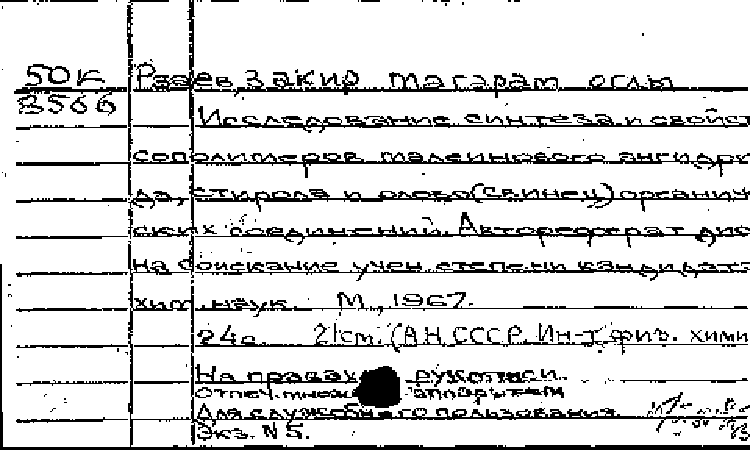 50К Рзаев, Закир Магарам оглы
3566
Исследование синтеза и свойст
сополимеров малеинового ангидри
да, стирола и олово(свинец)органич
ских соединений. Автореферат дис
на соискание учен. степени кандидата
хим. наук. М., 1967.
24с. 21 cm. (АН СССР. Ин-т физ. хими
На правах рукописи.
Отпеч. множ. аппаратом
Для служебного пользования.
Экз. N 5.